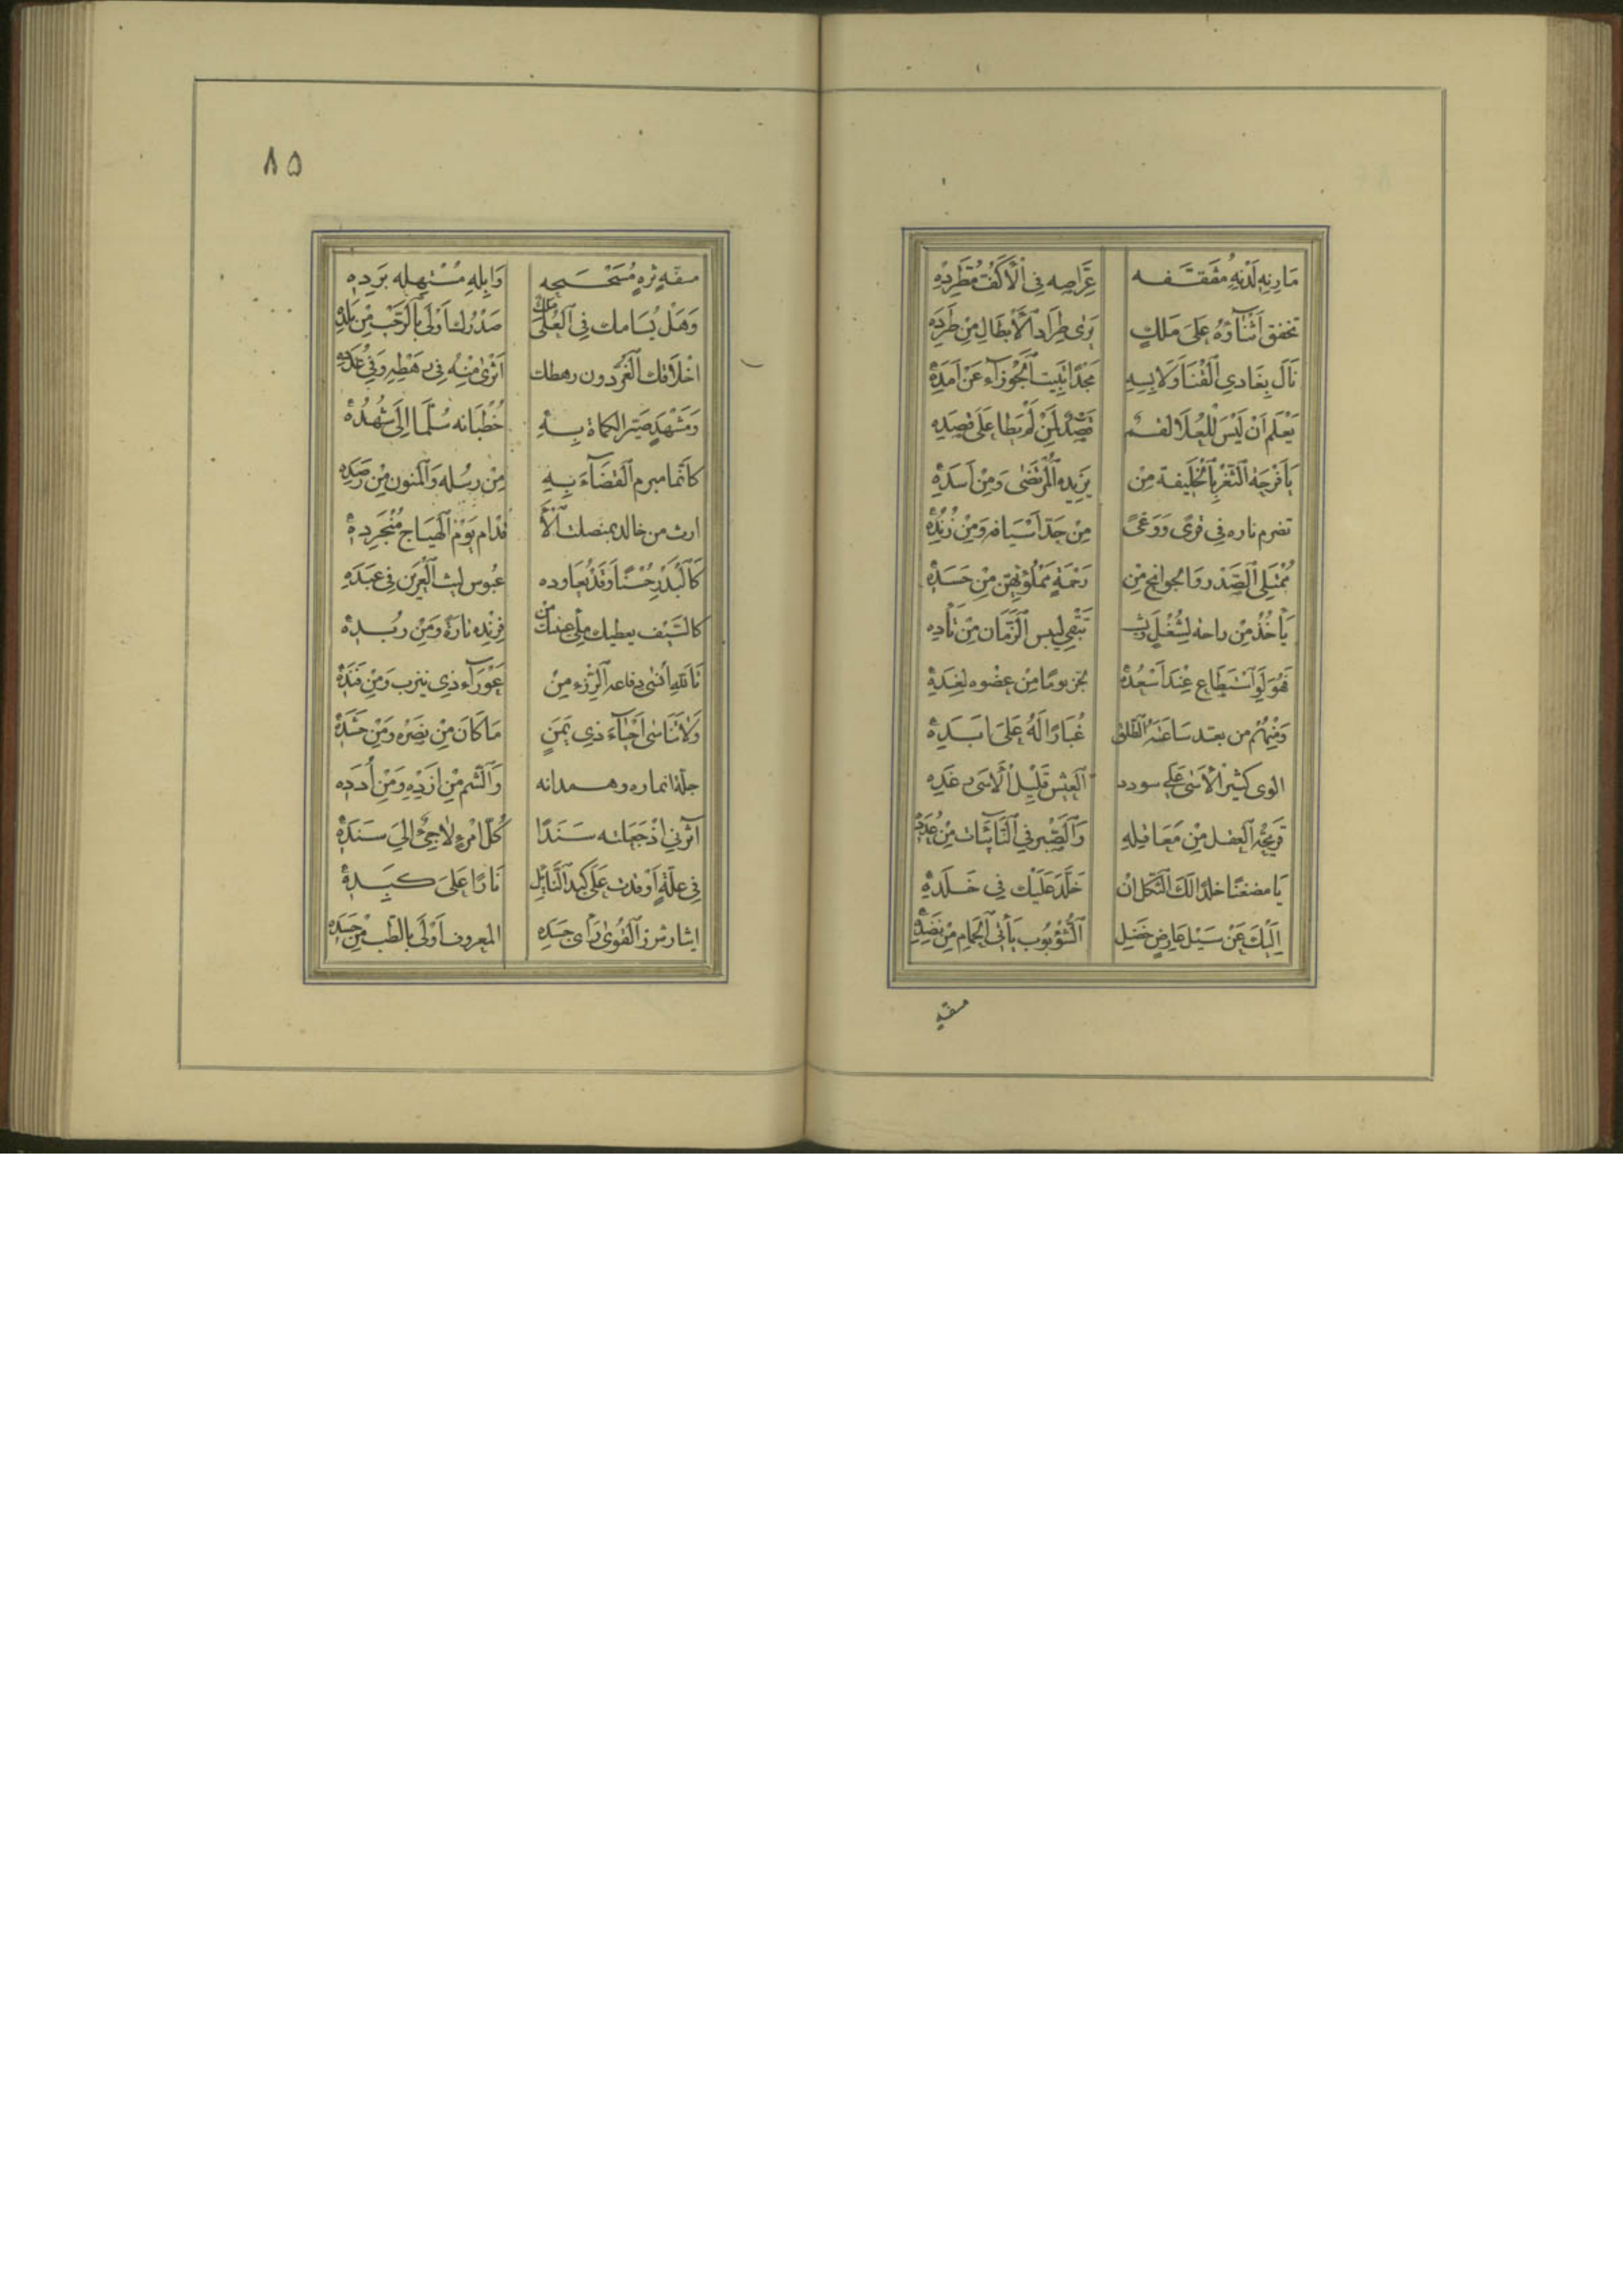 مَارِنِهِ لَدْنِهِ مُثَقَّفَه عَرَّاصِه فِي الْأَكُفِّ مُطَّرِدِهْ
تخفق أَثْنَاؤُهُ عَلَى مَلكٍ يَرى طِرَادَ الْأَبْطَالِ مِنْ طَرَدِه
نَالَ بِعَادِي الْقَنَا وَلَابِسِهِ مَجْدًا تَبِيت الْجَوْزَاء عَنْ أَمَدِهْ
يَعْلَم أَنْ لَيْسَ لِلعُلَا لقم قَصْدٌ لِمَنْ لَمْ يَطَا عَلَى قِصَدِه
يَا فَرْحَة الثَّغْرِ بِالْخَلِيفَة مِنْ يَزِيدِه الْمُرْتَضَى وَمِنْ أَسَدِهْ
تضرم ناره فِي قرى وَوَغىً مِنْ حَدّ أَسْيَافه وَمِنْ زُنُدِهْ
مُمْتَلِئ الصَّدْر وَالجوانح مِنْ رَحْمَةِ مَمْلُوْئهِنَّ مِنْ حَسَدِهْ
يَأْخُذُ مِنْ راحة لِشُغْلٍ
فَهُوَ لَوِ اسْتَطَاع عِنْدَ أَسْعُدِهْ عضوه لِغَدِهْ
وَمِنْهُمُ من بعد سَاعَته الطلق غُبَارًا لَهُ عَلَى
الوى كثير الأسى عَلَى سودد الْعَيْش قَلِيل الأسى رغده
قَرِيحَة العقل مِنْ مَعَاقِلِهِ وَالصَّبْر فِي النَّائِبَات مِنْ عُدَدِهْ
يَا مضغنًا خالدًا لَكَ الثّكل ان خَلَّدَ عَلَيْك فِي خَلَدِهْ
إِلَيْكَ عَنْ سَيْل عَارِضٍ خَضِل الشُّؤْبُوب يَأْتِي الْحِمَام مِنْ نَضَدِهْ
مسفّهِ
٨٥
مسفّهِ ثَرِّهِ مُسَحْسَحِه وَابِلِهِ مُسْتَهِلِّه بَرَدِه
وَهَلْ يُسَامك فِي العُلَى مَلِك صَدْرُك أَوْلَى بِالرُّحْبِ مِنْ بَلَدِه
اخْلَاقك الْغُرّ دون رهطك أَثْرَى مِنْهُ فِي رَهْطِهِ وَفِي عَدَدِه
وَمَشْهَدٍ صَيَّر الكماة بِهِ خُطْبَانه سُلَّمًا إِلَى شُهُدِهْ
كَأَنَّمَا مبرم الْقَضَاءَ بِهِ مِنْ رسُله وَالْمنون مِنْ رَصَدِه
ارث من خالد بمنصلت الأ قدام يَوْمَ الْهِيَاج مُنْجَرِدِهْ
كَالْبَدْرِ حُسْنًا وَقَدْ يُعَاوده عُبُوس ليث الْعَرِين فِي عَبَدِه
كالسَّيْف يعطيك ملء عينك من فِرِنْدِه تارَةً وَمِنْ رُبَدِهْ
تَا لله أنسى دفاعه الزور مِنْ عَوْرَاء ذِي نيرب وَمِنْ فَنَدِهْ
وَلَا تَنَاسَى أَحْيَاءَ ذِي يَمَنٍ مَا كَانَ مِنْ نَصْرِه وَمِنْ حَشَدِهْ
جلّة انماره وهمدانه وَالشّم مِنْ ازْدِهِ وَمِنْ أُدَدِه
آثَرَنِي إِذْ جَعَلته سَنَدًا كُلّ امْرِئٍ لَاجِئٌ إِلَى سَنَدِهْ
فِي عِلّةٍ أَوْقَدَت عَلَى كَبِد النَّائِل نَارًا عَلَى كَبِدِهْ
ايثار شزر الْقُوَى رَأَى جَسَدِه المعروف أَوْلَى بِالطِّب مِنْ جَسَدِه